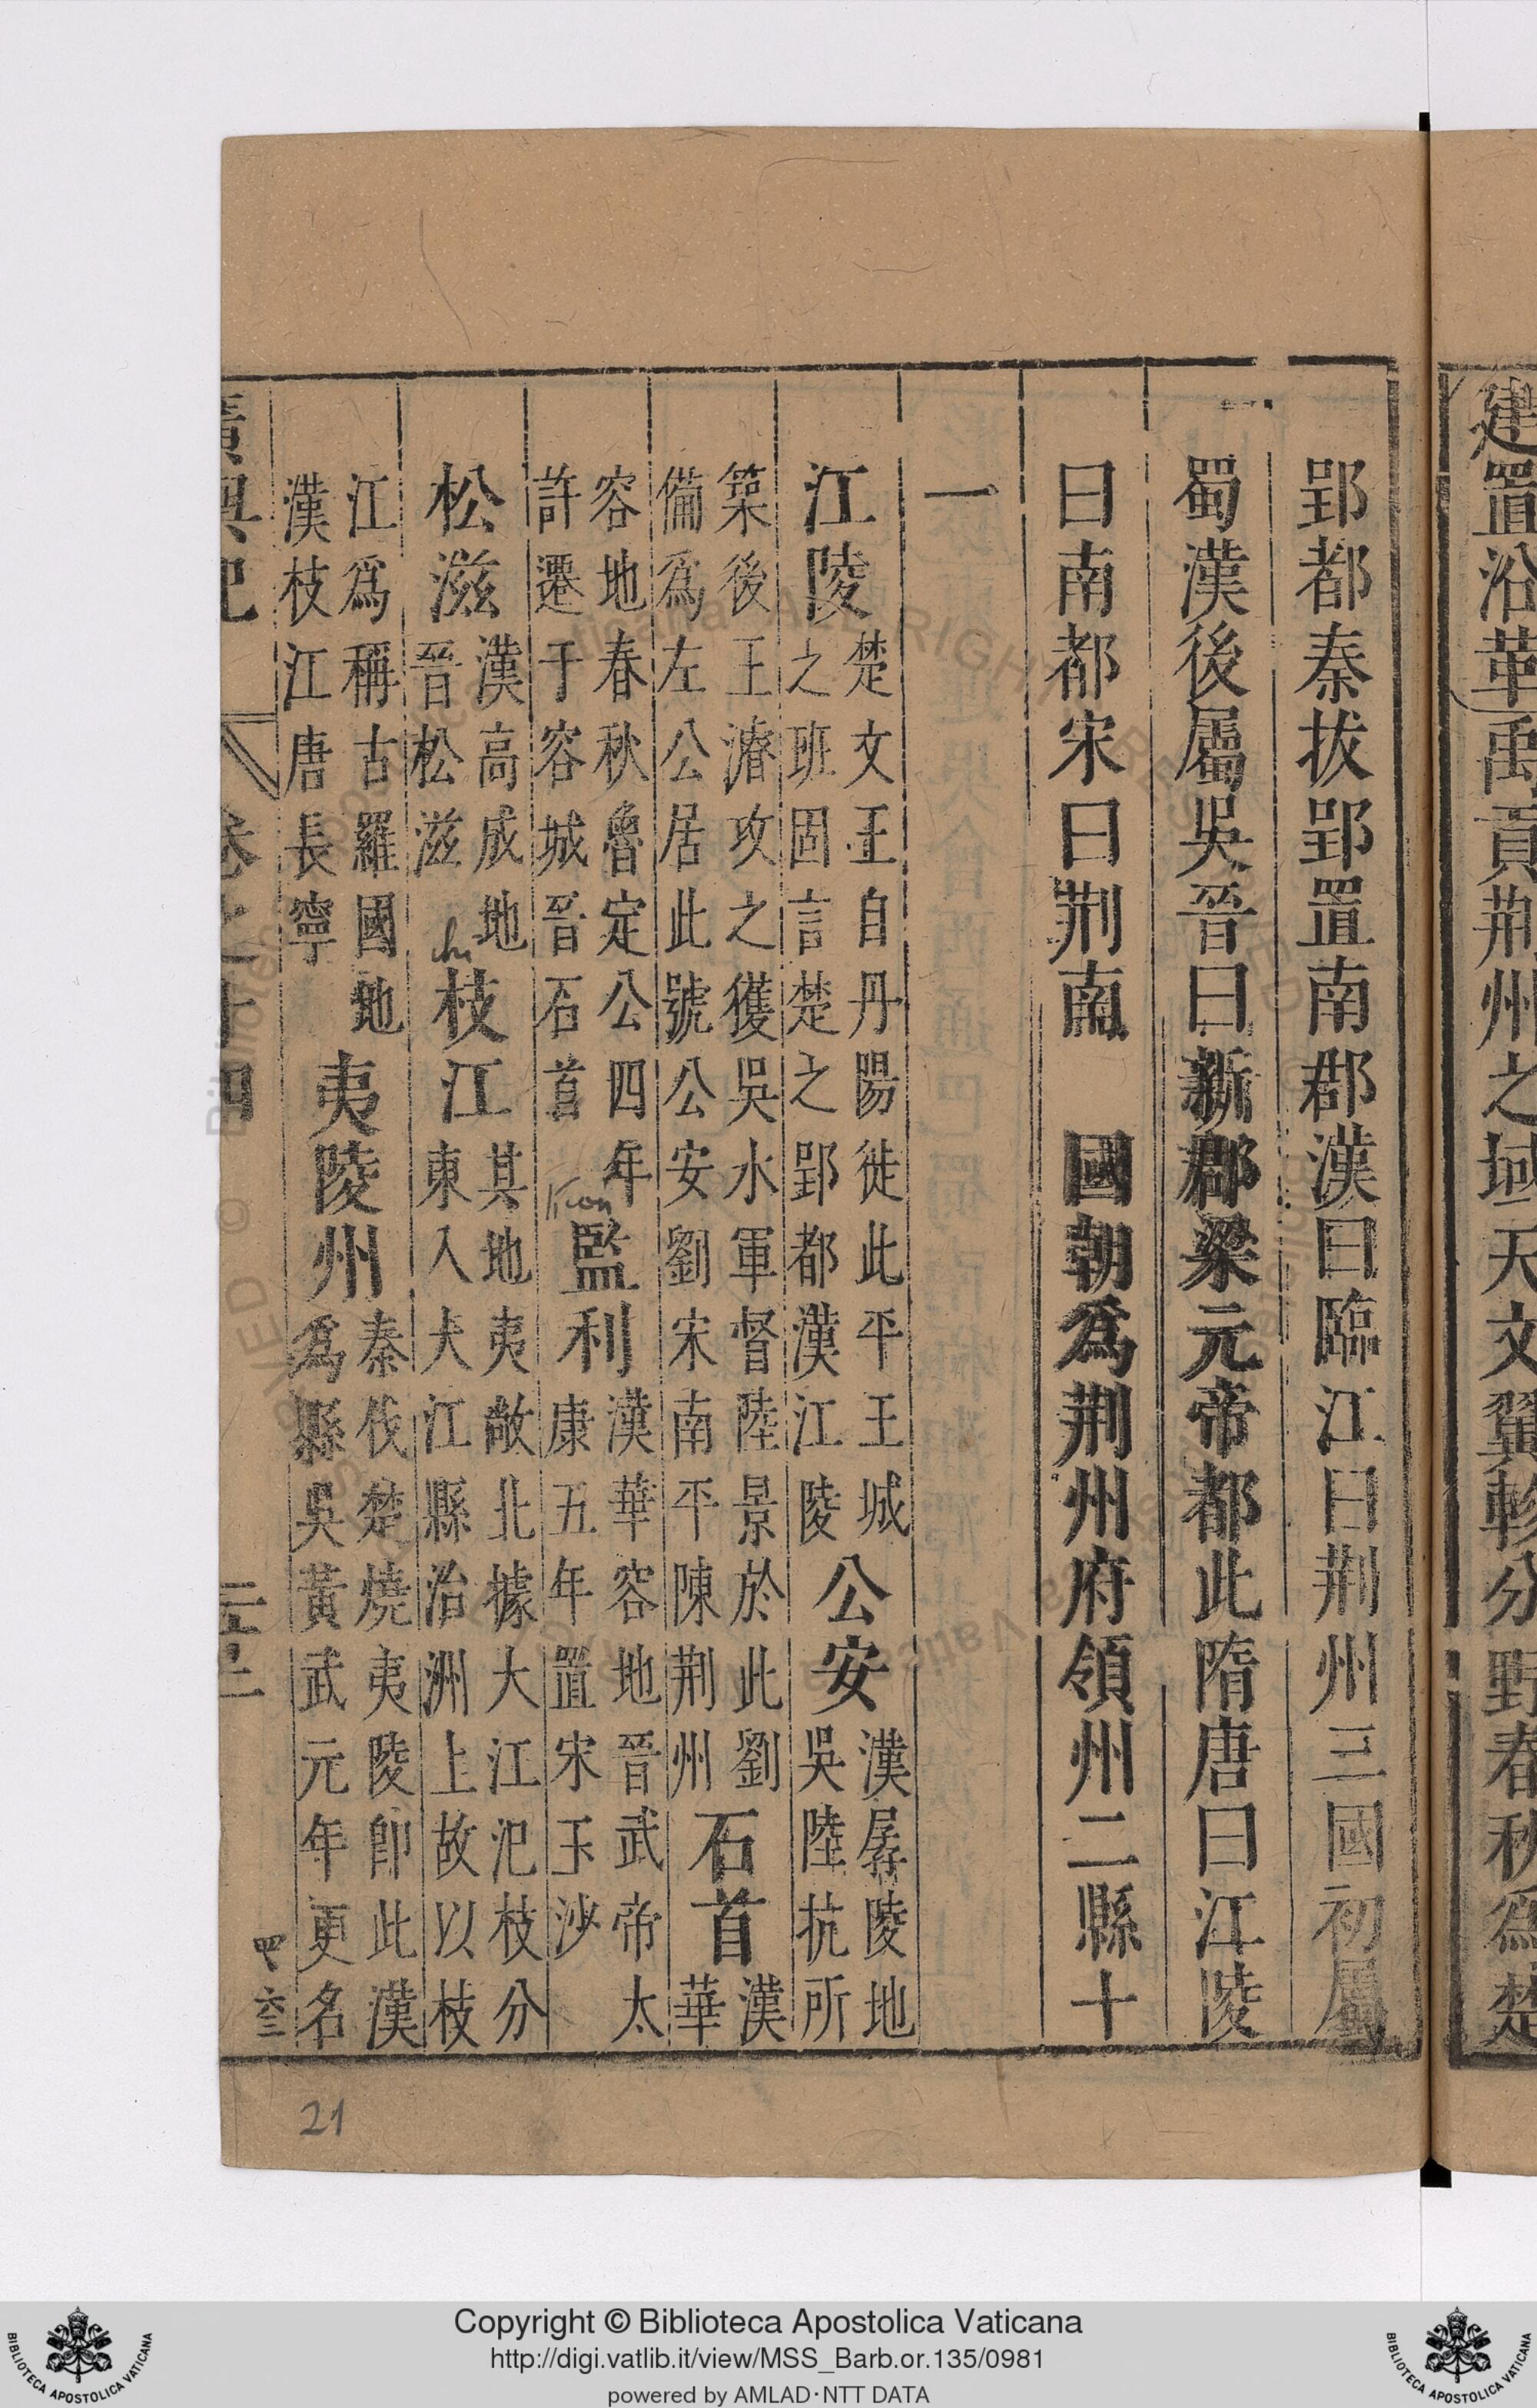 建置沿革禹貢荆州之域天文翼軫分野春秋爲楚
郢都秦拔郢置南郡漢曰臨江曰荆州三國初屬
蜀漢後屬吳晉曰新郡梁元帝都此隋唐曰江陵
曰南都宋曰荆南 國朝爲荆州府領州二縣十
一
江陵 楚文王自丹陽徙此平王城
之班固言楚之郢都漢江陵
公安 漢孱陵地
吳陸抗所
築後王濬攻之獲吳水軍督陸景於此劉
備爲左公居此號公安劉宋南平陳荆州
石首 漢
華
容地春秋魯定公四年
許遷于容城晉石首
監利 漢華容地晉武帝太
康五年置宋玉沙
松滋 漢高成地
晉松滋
枝江 其地夷敞北據大江汜枝分
東入大江縣治洲上故以枝
江爲稱古羅國地
漢枝江唐長寧
夷陵州 秦伐楚燒夷陵卽此漢
爲縣吳黃武元年更名
廣輿記 卷之十四
chi
Kien
21
Copyright © Biblioteca Apostolica Vaticana
http://digi.vatlib.it/view/MSS_Barb.or.135/0981
powered by AMLAD·NTT DATA
BIBLIOTECA APOSTOLICA VATICANA
BIBLIOTECA APOSTOLICA VATICANA